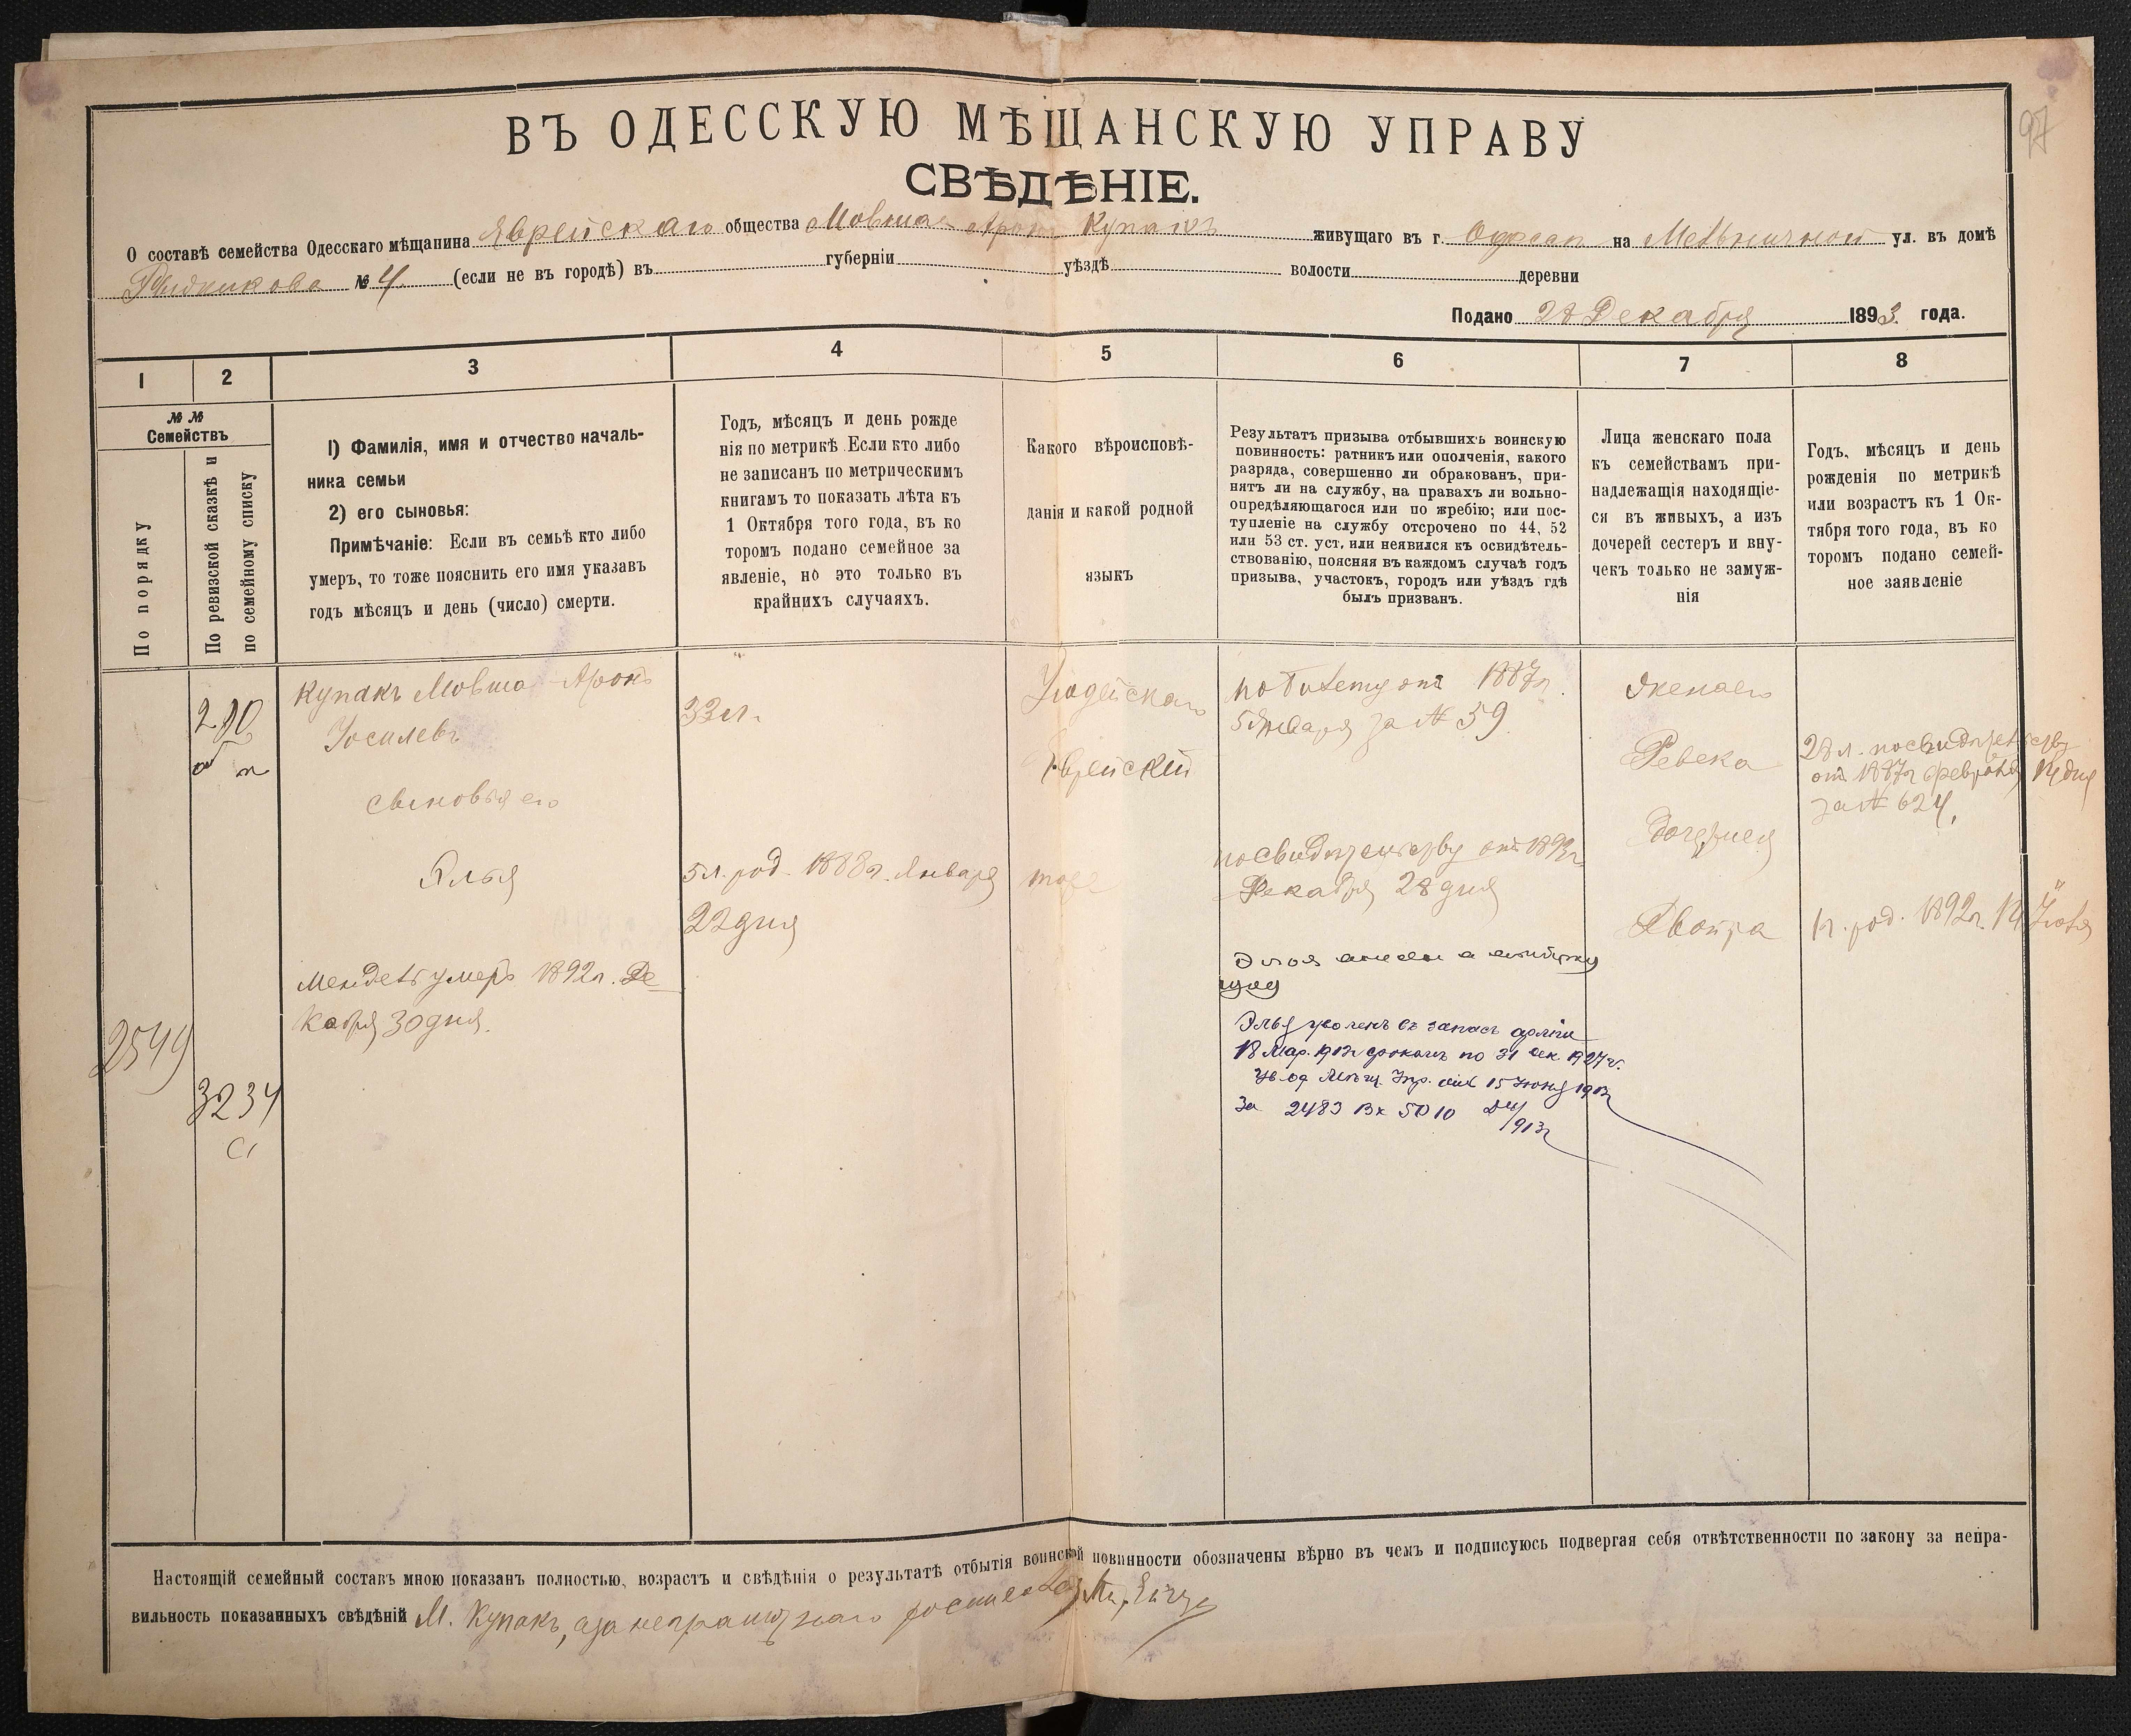 97
ВЪ ОДЕССКУЮ МѢЩАНСКУЮ УПРАВУ
СВѢДѢНІЕ.
О составѣ семейства Одесскаго мѣщанина Яврейскаго общества Мовша Аронъ Купакъ живущаго въ г. Одесса на Мельничной ул. въ домѣ
№ 4 (если не въ городѣ) въ губерніи уѣздѣ волости деревни
Подано 28 Декабря 1893 года.
1 2 3 4 5 6 7 8
№ №
Семействъ
По порядку
По ревизской сказкѣ и
по семейному списку
1) Фамилія, имя и отчество началь-
ника семьи
2) его сыновья:
Примѣчаніе: Если въ семьѣ кто либо
умеръ, то тоже пояснить его имя указавъ
годъ мѣсяцъ и день (число) смерти.
Годъ, мѣсяцъ и день рожде
нія по метрикѣ Если кто либо
не записанъ по метрическимъ
книгамъ то показать лѣта къ
1 Октября того года, въ ко
торомъ подано семейное за
явленіе, но это только въ
крайнихъ случаяхъ.
Какого вѣроисповѣ-
данія и какой родной
языкъ
Результатъ призыва отбывшихъ воинскую
повинность: ратникъ или ополченія, какого
разряда, совершенно ли обракованъ, при-
нятъ ли на службу, на правахъ ли вольно-
опредѣляющагося или по жребію; или пос-
тупленіе на службу отсрочено по 44, 52
или 53 ст. уст, или неявился къ освидѣтель-
ствованію, поясняя въ каждомъ случаѣ годъ
призыва, участокъ, городъ или уѣздъ гдѣ
былъ призванъ.
Лица женскаго пола
къ семействамъ при-
надлежащія находящіе-
ся въ живыхъ, а изъ
дочерей сестеръ и вну-
чекъ только не замуж-
нія
Годъ, мѣсяцъ и день
рожденія по метрикѣ
или возрастъ къ 1 Ок-
тября того года, въ ко
торомъ подано семей-
ное заявленіе
Купакъ Мовша Аронъ
Иосилевъ
33 л.
Иудейскаго
Еврейскій
по билету отъ 1887г.
5 Января за № 59
Ревека
28 л. посвидѣтельству
отъ 1887г Февраля 14 дня
за № 624.
сыновья его
Элья
5л. род. 1888г. Января
22 дня
тоже
посвидѣтельству отъ 1893г
Декабря 28 дня
Двойра
1г. род. 1892г. 14 Іюля
Мендель умеръ 1892г. Де
кабря 30 дня.
2549
3234
Элья уволенъ въ запасъ арміи
18 Мар. 1913г срокомъ по 31 дек 1927г.
Мѣщ. Упр. 15 Июня 1913г
за 2483 Вх 5010
1913г
Настоящій семейный составъ мною показанъ полностью, возрастъ и свѣдѣнія о результатѣ отбытія воинской повинности обозначены вѣрно въ чемъ и подписуюсь подвергая себя отвѣтственности по закону за непра-
вильность показанныхъ свѣдѣній М. Купакъ, а за неграмотнаго